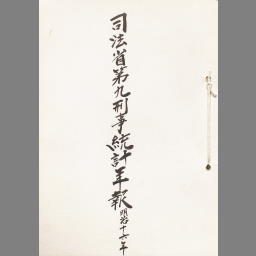 司法省第九刑事統計年報明治十六年